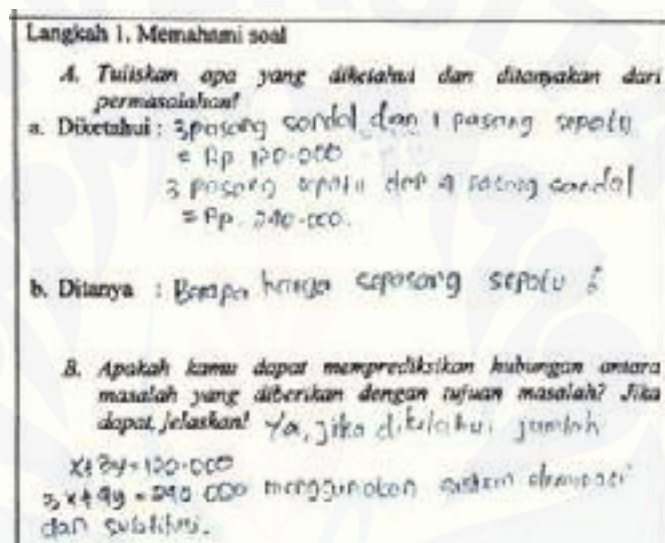 Langkah 1. Memahami soal
A. Tuliskan apa yang diketahui dan ditanyakan dari
permasalahan!
a. Diketahui : 3 pasang sandal dan 1 pasang sepatu
= Rp 120.000
3 pasang sepatu dan 4 pasang sandal
= Rp. 240.000.
b. Ditanya : Berapa harga sepasang sepatu ?
B. Apakah kamu dapat memprediksikan hubungan antara
masalah yang diberikan dengan tujuan masalah? Jika
dapat, jelaskan! Ya, jika diketahui jumlah
x+3y=120.000
3x+4y=240.000 menggunakan sistem eliminasi
dan subtitusi.